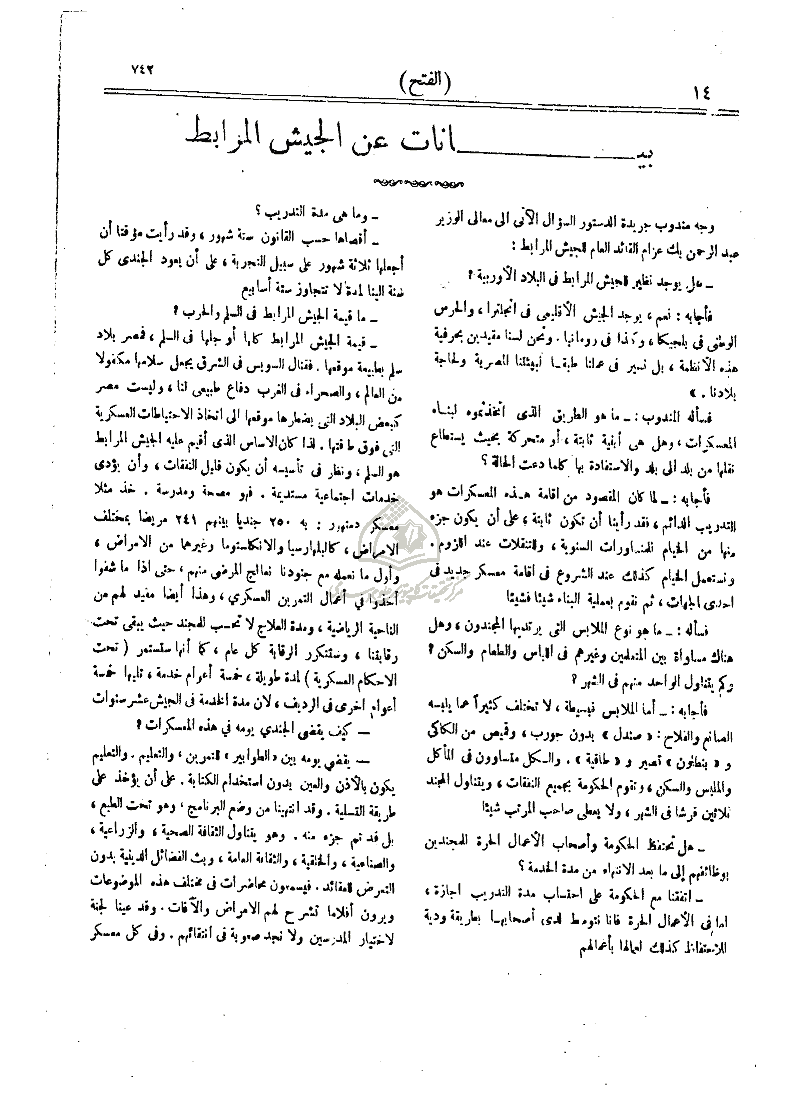 ١٤
(الفتح)
٧٤٢
بيـــــانات عن الجيش المرابط
وجه مندوب جريدة الدستور السؤال الآتى الى معالى الوزير
عبد الرحمن بك عزام القائد العام للجيش المرابط :
ـ هل يوجد نظير للجيش المرابط فى البلاد الأوربية ؟
فأجابه : نعم ، يوجد الجيش الأقليمى فى انجلترا ، والحرس
الوطنى فى بلجيكا ، وكذا فى رومانيا . ونحن لسنا مقيدين بحرفية
هذه الأنظمة ، بل نسير فى عملنا طبقا لبيئتنا المصرية ولحاجة
بلادنا . »
فسأله المندوب : ـ ما هو الطريق الذى اتخذتموه لبناء
المعسكرات ، وهل هى أبنية ثابتة ، أو متحركة بحيث يستطاع
نقلها من بلد الى بلد والاستفادة بها كلما دعت الحالة ؟
فأجابه : ـ لما كان المقصود من اقامة هذه المعسكرات هو
التدريب الدائم ، فقد رأينا أن تكون ثابتة ، على أن يكون جزء
منها من الخيام للمناورات السنوية ، والتنقلات عند اللزوم .
ونستعمل الخيام كذلك عند الشروع فى اقامة معسكر جديد فى
احدى الجهات ، ثم نقوم بعملية البناء شيئا فشيئا
فسأله : ـ ما هو نوع الملابس التى يرتديها المجندون ، وهل
هناك مساواة بين المتعلمين وغيرهم فى اللباس والطعام والسكن ؟
وكم يتناول الواحد منهم فى الشهر ؟
فأجابه : ـ أما الملابس فبسيطة ، لا تختلف كثيراً عما يلبسه
الصانع والفلاح : « صندل » بدون جورب ، وقميص من الكاكى
و « بنطلون » قصير و « طاقية » . والكل متساوون فى المأكل
والملبس والسكن ، وتقوم الحكومة بجميع النفقات ، ويتناول المجند
ثلاثين قرشا فى الشهر ، ولا يعطى صاحب المرتب شيئا
ـ هل تحتفظ الحكومة وأصحاب الأعمال الحرة للمجندين
بوظائفهم إلى ما بعد الانتهاء من مدة الخدمة ؟
ـ اتفقنا مع الحكومة على احتساب مدة التدريب اجازة ،
اما فى الأعمال الحرة فانا نتوسط لدى أصحابها بطريقة ودية
للاحتفاظ كذلك لعمالها بأعمالهم
ـ وما هى مدة التدريب ؟
ـ أقصاها حسب القانون ستة شهور ، وقد رأيت مؤقتا أن
أجعلها ثلاثة شهور على سبيل التجربة ، على أن يعود الجندى كل
سنة الينا لمدة لا تتجاوز ستة أسابيع
ـ ما قيمة الجيش المرابط فى السلم والحرب ؟
ـ قيمة الجيش المرابط كلها أو جلها فى السلم ، فمصر بلاد
سلم بطبيعة موقعها . فقنال السويس فى الشرق يجعل سلامها مكفولا
من العالم ، والصحراء فى الغرب دفاع طبيعى لنا ، وليست مصر
كبعض البلاد التى يضطرها موقعها الى اتخاذ الاحتياطات العسكرية
التى فوق طاقتها . لذا كان الاساس الذى أقيم عليه الجيش المرابط
هو السلم ، ونظر فى تأسيسه أن يكون قليل النفقات ، وأن يؤدى
خدمات اجتماعية مستديمة . فهو مصحة ومدرسة . خذ مثلا
معسكر دمنهور : به ٢٥٠ جنديا بينهم ٢٤١ مريضا بمختلف
الامراض ، كالبلهارسيا والانكلستوما وغيرهما من الامراض ،
وأول ما نعمله مع جنودنا نعالج المرضى منهم ، حتى اذا ما شفوا
أخذوا فى أعمال التمرين العسكري ، وهذا أيضا مفيد لهم من
الناحية الرياضية ، ومدة العلاج لا تحسب للمجند حيث يبقى تحت
رقابتنا ، وستتكرر الرقابة كل عام ، كما أنها ستستمر ( تحت
الاحكام العسكرية ) لمدة طويلة ، خمسة أعوام خدمة ، تليها خمسة
أعوام اخرى فى الرديف ، لان مدة الخدمة فى الجيش عشر سنوات
— كيف يقضى الجندي يومه في هذه المعسكرات ؟
— يقضي يومه بين «الطوابير» للتمرين ، والتعليم . والتعليم
يكون بالأذن والعين بدون استخدام الكتابة . على أن يؤخذ على
طريقة التسلية . وقد انتهينا من وضع البرنامج ، وهو تحت الطبع ،
بل قد تم جزء منه . وهو يتناول الثقافة الصحية ، والزراعية ،
والصناعية ، والخلقية ، والثقافة العامة ، وبث الفضائل الدينية بدون
التعرض للعقائد . فيسمعون محاضرات فى مختلف هذه الموضوعات
ويرون أفلاما تشرح لهم الامراض والآفات . وقد عينا لجنة
لاختيار المدرسين ولا نجد صعوبة فى انتقائهم . وفى كل معسكر